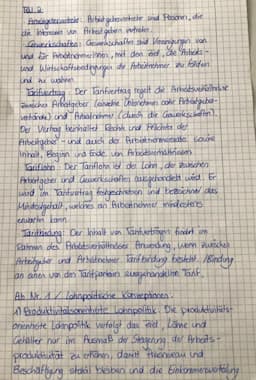 Arbeitgebervertreter: Arbeitgebervertreter sind Personen, die
die Interessen von Arbeitgebern vertreten.
Gewerkschaften: Gewerkschaften sind Vereinigungen von
und für Arbeitnehmer/innen, mit dem Ziel, die Arbeits-
und Wirtschaftsbedingungen der Arbeitnehmer zu fördern
und zu wahren.
Tarifvertrag: Der Tarifvertrag regelt die Arbeitsverhältnisse
zwischen Arbeitgeber (einzelne Unternehmen oder Arbeitgeberver-
verbände) und Arbeitnehmer (durch die Gewerkschaften).
Der Vertrag beinhaltet Rechte und Pflichten der
Arbeitgeber- und auch der Arbeitnehmerseite sowie
Inhalt, Beginn und Ende von Arbeitsverhältnissen.
Tariflohn: Der Tariflohn ist der Lohn, der zwischen
Arbeitgeber und Gewerkschaften ausgehandelt wird. Er
wird im Tarifvertrag festgeschrieben und bezeichnet das
Mindestgehalt, welches ein Arbeitnehmer mindestens
erwarten kann.
Tarifbindung: Der Inhalt von Tarifverträgen findet im
Rahmen des Arbeitsverhältnisses Anwendung, wenn zwischen
Arbeitgeber und Arbeitnehmer Tarifbindung besteht. /Bindung
an einen von den Tarifparteien ausgehandelten Tarif.
Ab Nr. 1 / Lohnpolitische Konzeptionen.
1) Produktivitätsorientierte Lohnpolitik: Die produktivitäts-
orientierte Lohnpolitik verfolgt das Ziel, Löhne und
Gehälter nur im Ausmaß der Steigerung der Arbeits-
produktivität zu erhöhen, damit Preisniveau und
Beschäftigung stabil bleiben und die Einkommensverteilung